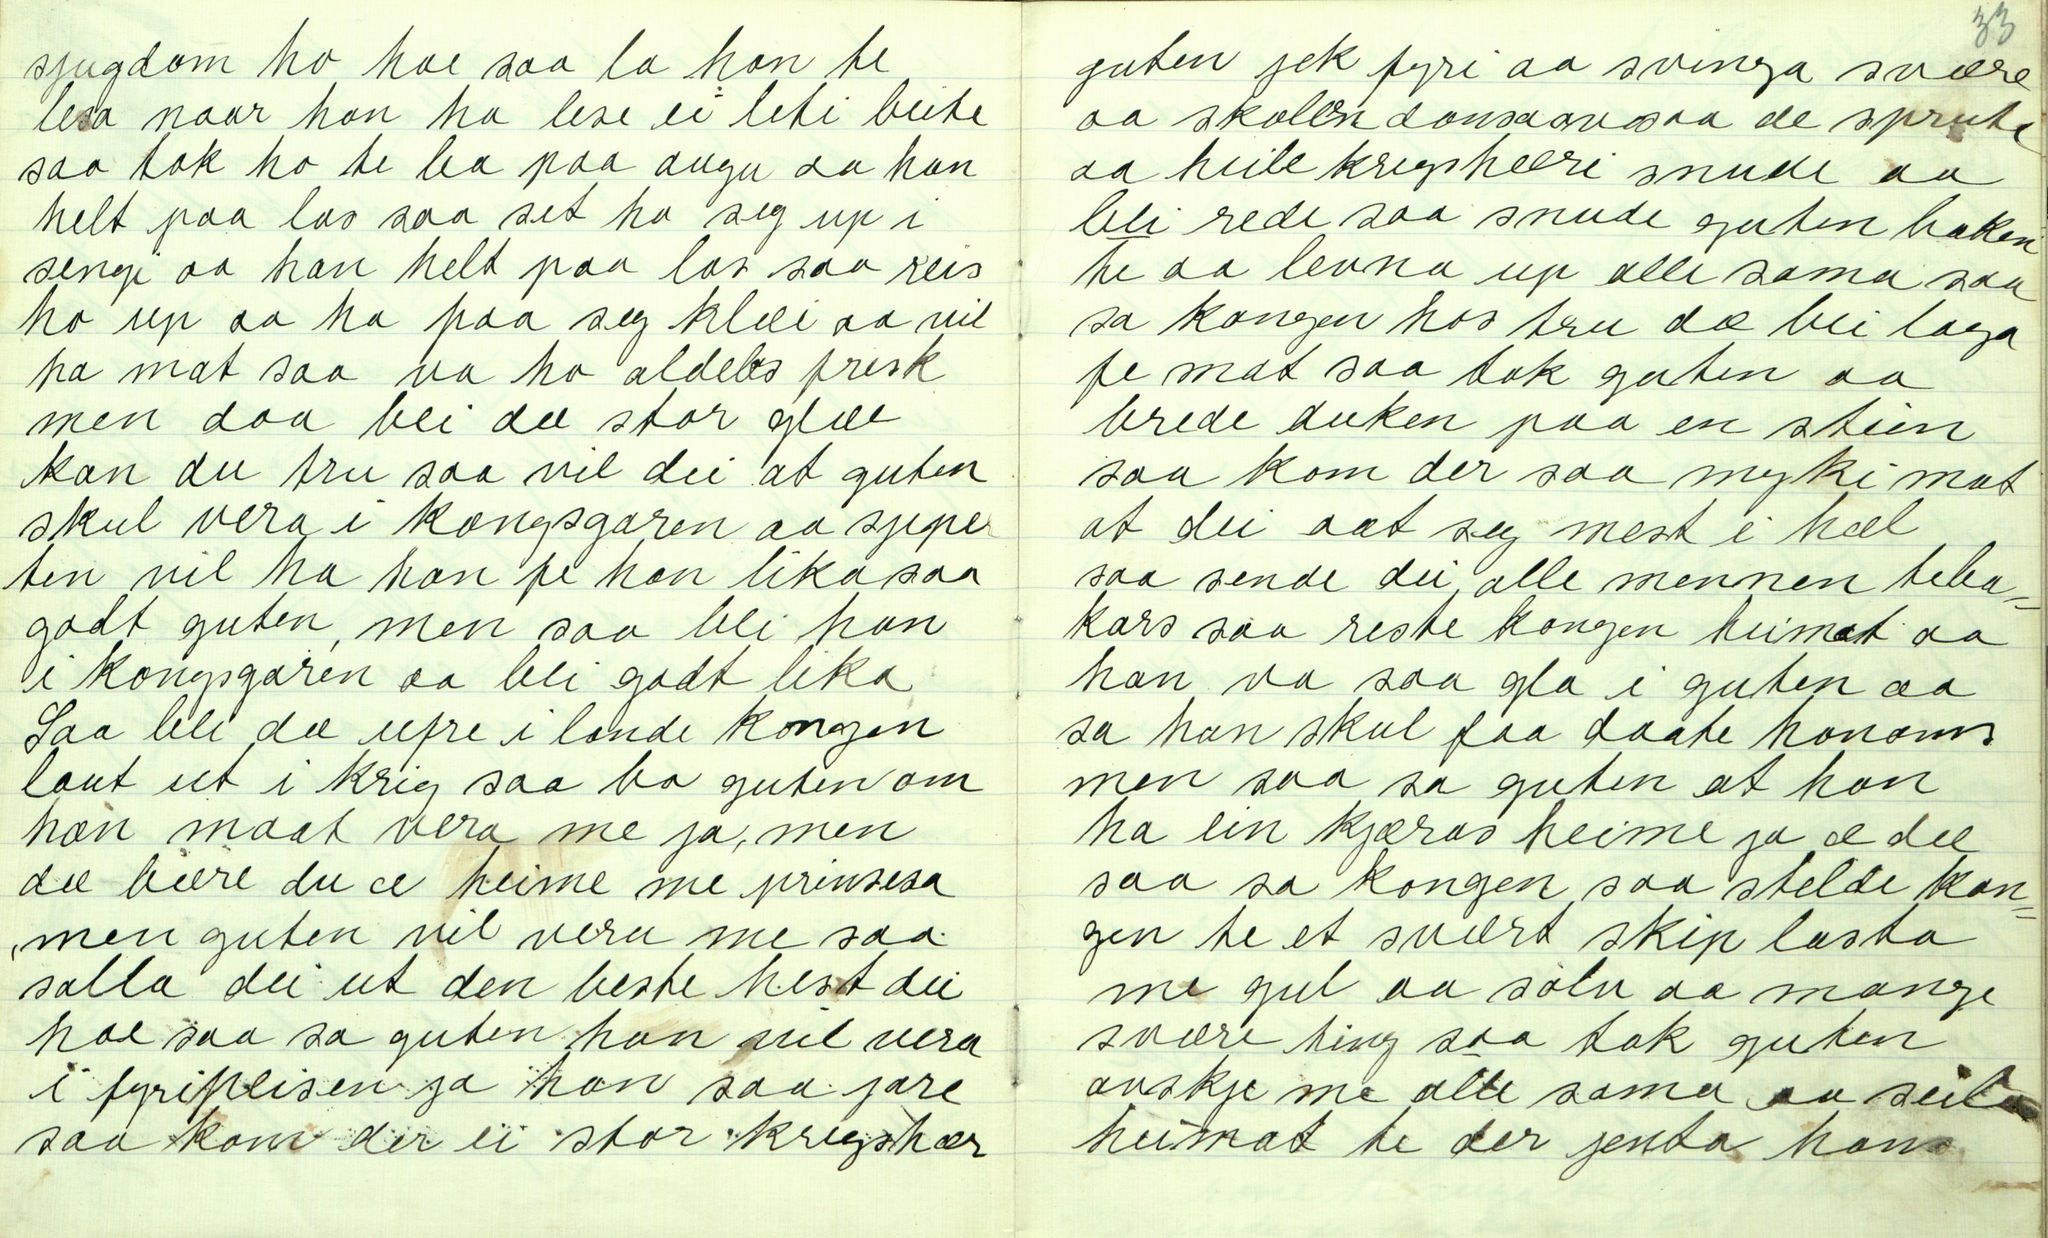 sjugdom ho hae saa la han te
lesa naar han ha lese ei leti beite
saa tok ho te lea paa augu aa han
helt paa las saa set ho seg up i
sengi aa han helt paa las saa reis
ho up aa ha paa seg klæi aa vil
ha mat saa va ho aldeles frisk
men daa blei dæ stor glæe
kan du tru saa vil dei at guten
skul vera i kongsgaren aa sjeper
ten vil ha han fe han lika saa
godt guten, men saa blei han
i kongsgaren aa blei godt lika
Saa blei dæ ufre i lande kongen
laut ut i krig saa ba guten om
han maat vera me ja, men
dæ bære du æ heime me prinsesa
men guten vil vera me saa
salla dei ut den beste hest dei
hae saa sa guten han vil vera
i fyriplisen ja han saa jore
saa kom der ei stor krigshær
33
guten jek fyri aa svinga svære
aa skallen dansa av saa de sprute
aa heile krigshæri snude aa
blei rede saa snude guten baken
te aa levna up alle sama saa
sa kongen hos tru dæ blei laga
fe mat saa tok guten aa
brede duken paa en stein
saa kom der saa myki mat
at dei aat seg mest i hæl
saa sende dei alle mennen teba=
kars saa reste kongen heimat aa
han va saa gla i guten aa
sa han skul faa daate honoms
men saa sa guten at han
ha ein kjæras heime ja æ dæ
saa sa kongen saa stelde kon=
gen te et svært skip lasta
me gul aa sølv aa mange
svære ting saa tok guten
avskje me alle sama aa seila
heimat te der jenta hans